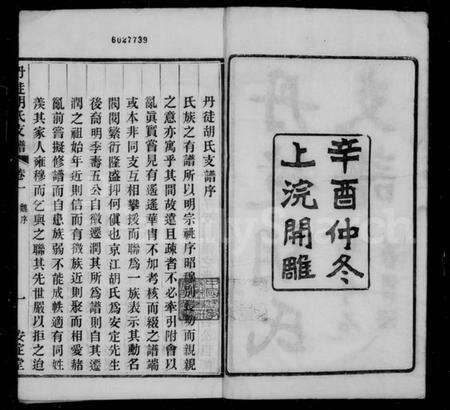 6027739
辛酉仲冬
上浣開雕
丹徒胡氏支譜序
氏族之有譜所以明宗祧序昭穆別長幼而親親
之意亦寓乎其間故遠且疎者不必牽引附會以
亂眞買嘗見有遙遙華冑不加考核而綴之譜端
或本非同支互相攀援而聯為一族表示其動名
閥閱繁衍隆盛抑何傎也京江胡氏為安定先生
後裔明季壽五公自徽遷潤其所為譜則自其遷
潤之祖始年近則信而有徵族近則聚而相愛緒
亂前嘗擬修譜而自患族弱不能成帙適有同姓
羨其家人雍穆而乞與之聯其先世嚴以拒之迨
丹徒胡氏支譜 卷一 魏序 一 安定堂